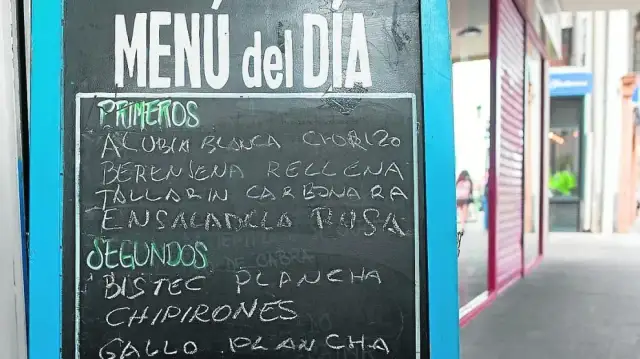 MENÚ del DÍA
PRIMEROS
ALUBIA BLANCA CHORIZO
BERENJENA RELLENA
TALLARIN CARBONARA
ENSALADILLA RUSA
SEGUNDOS
DE CABRA
BISTEC PLANCHA
CHIPIRONES
GALLO PLANCHA